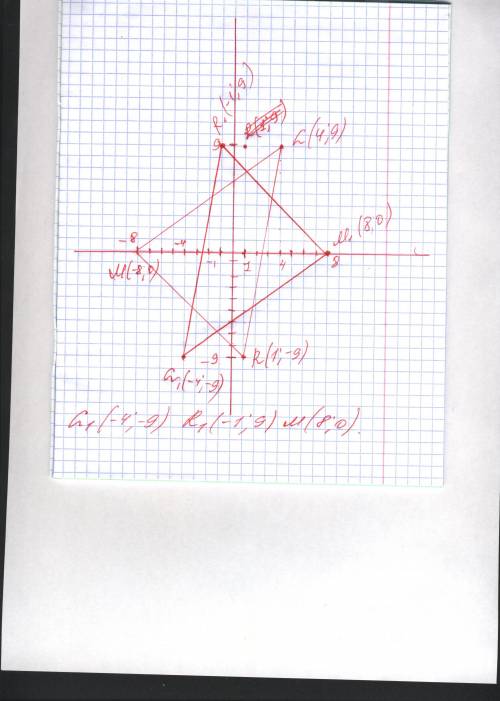 R₁(-1;9)
9
L(4;9)
-8
-4
M₁(8;0)
M(-8;0)
-1
1
4
8
-9
R(1;-9)
L₁(-4;-9)
L₁(-4;-9) R₁(-1;9) M(8;0).